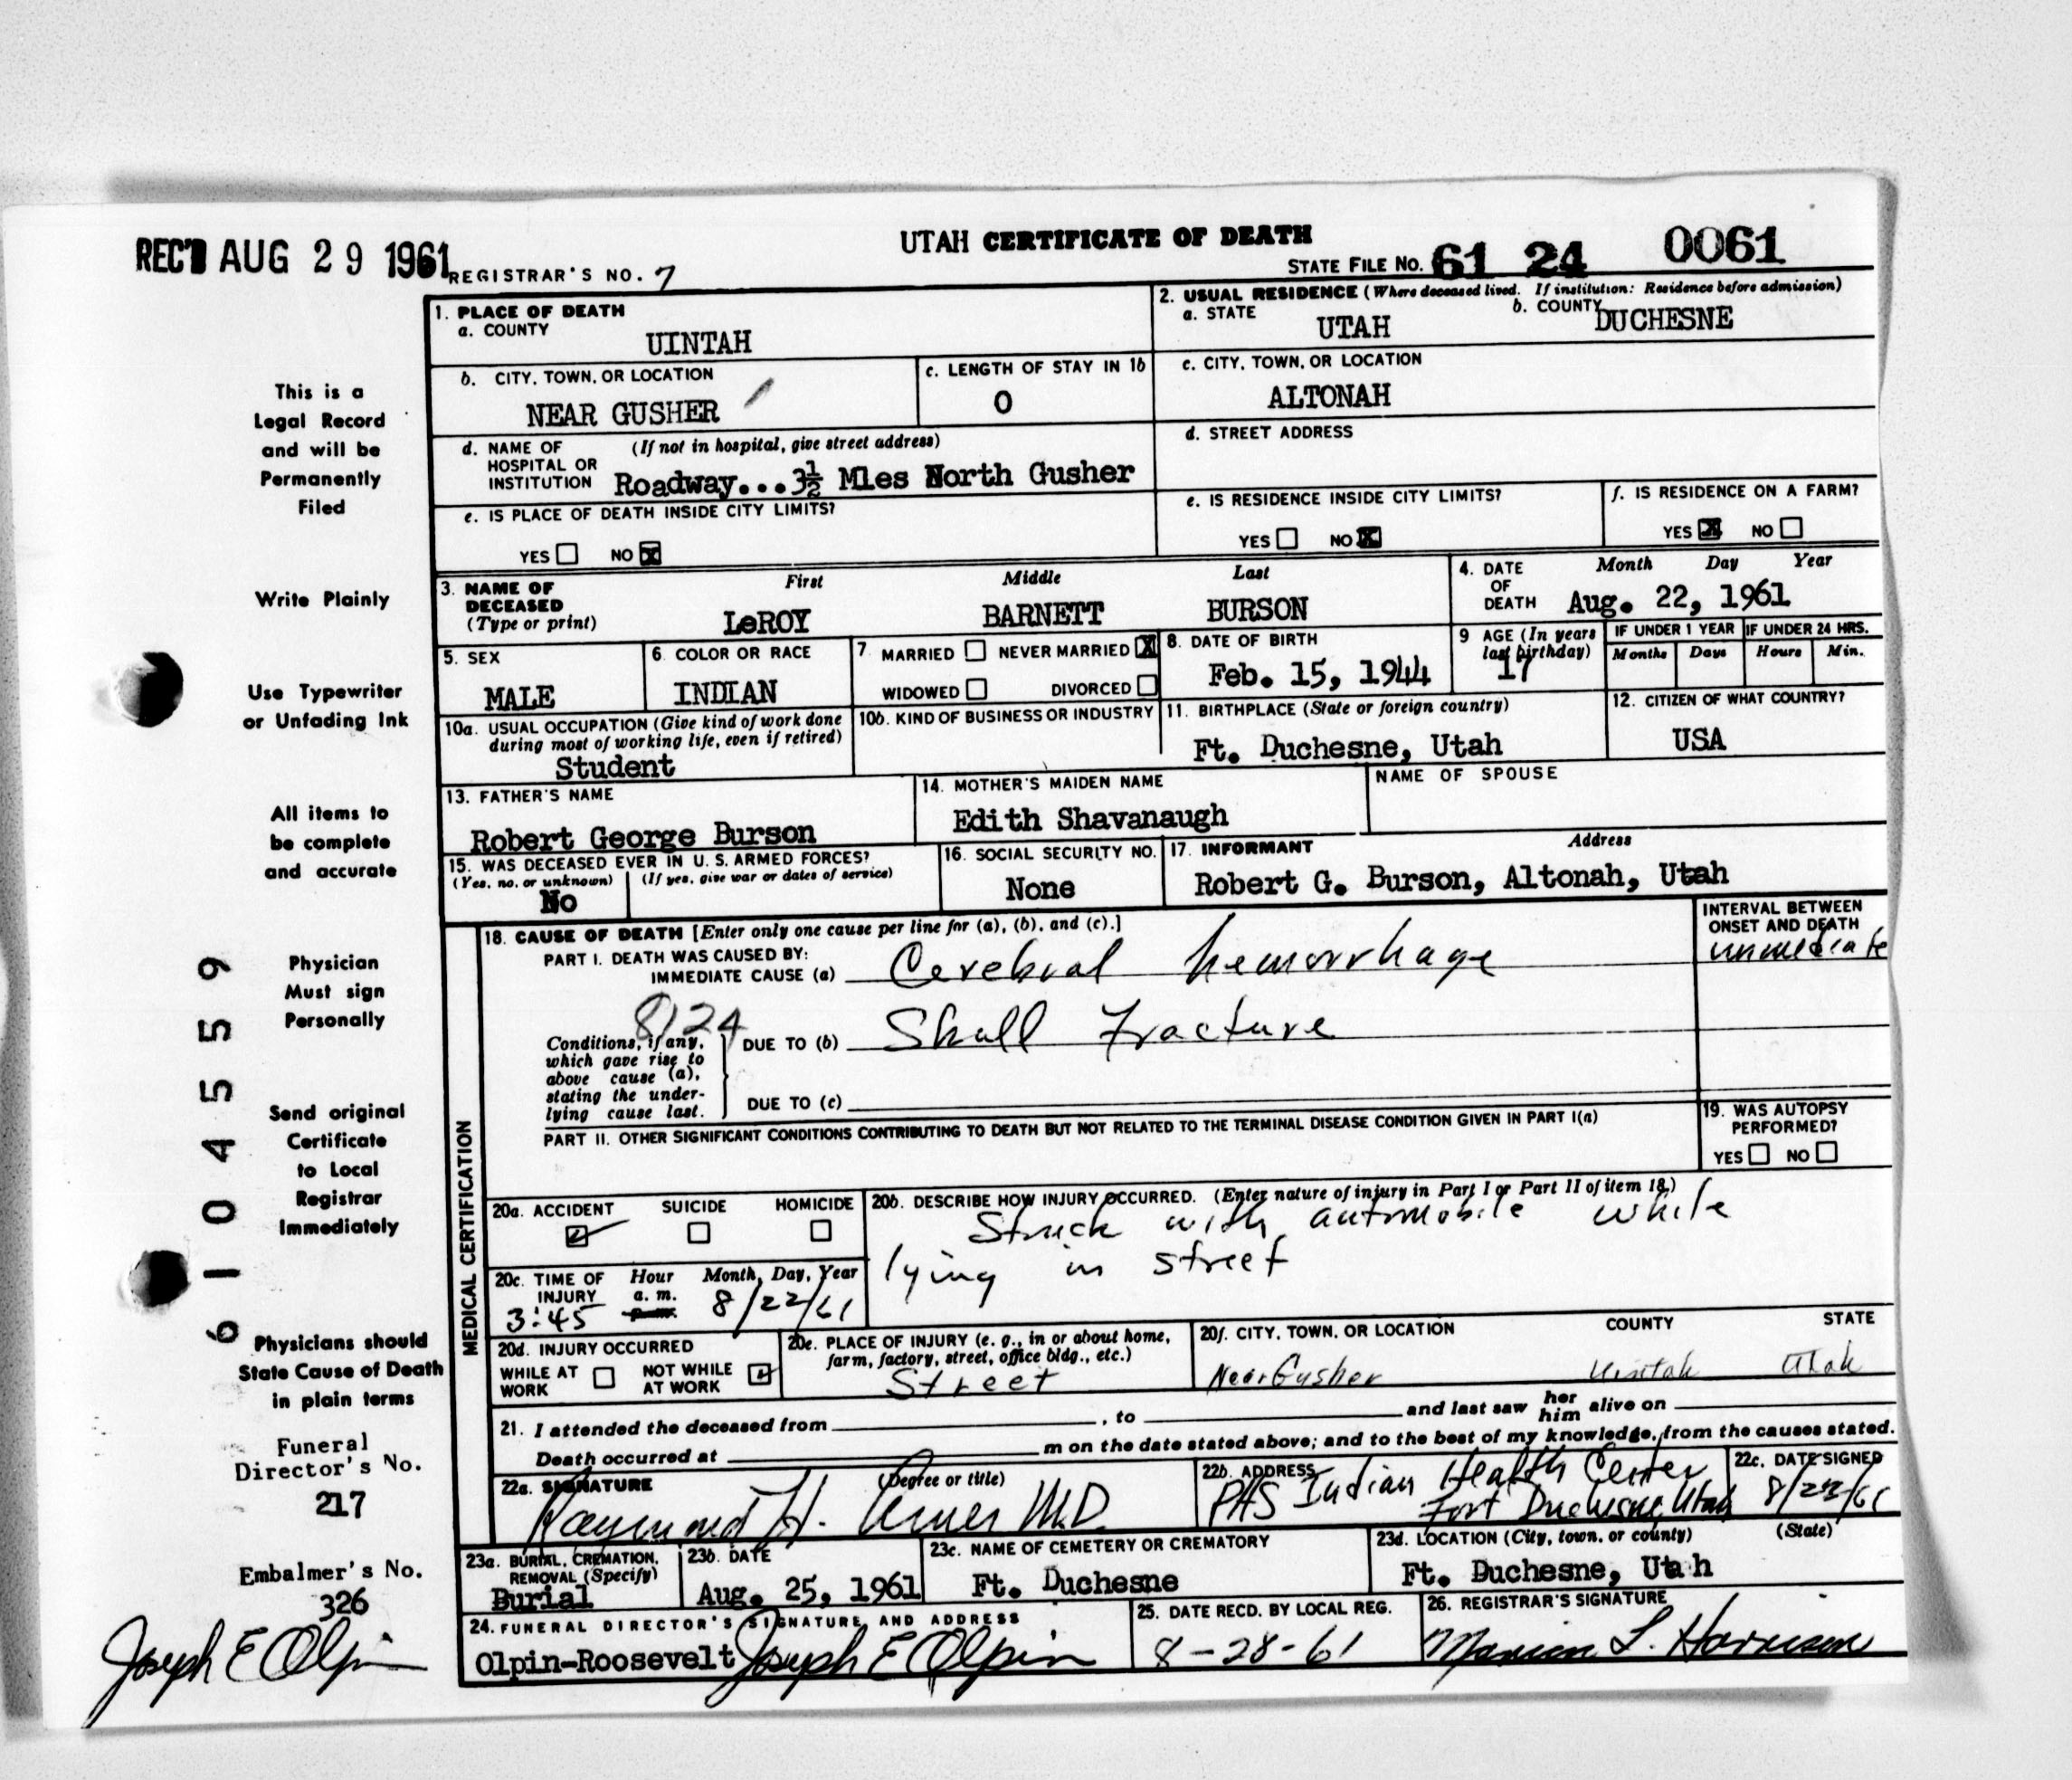 REC'D AUG 29 1961
UTAH CERTIFICATE OF DEATH
REGISTRAR'S NO. 7
STATE FILE NO. 61 24 0061
1. PLACE OF DEATH
a. COUNTY
UINTAH
2. USUAL RESIDENCE (Where deceased lived. If institution: Residence before admission)
a. STATE
UTAH
b. COUNTY
DUCHESNE
b. CITY, TOWN, OR LOCATION
NEAR GUSHER
c. LENGTH OF STAY IN 1b
0
c. CITY, TOWN, OR LOCATION
ALTONAH
d. NAME OF HOSPITAL OR INSTITUTION
(If not in hospital, give street address)
Roadway...3½ Mles North Gusher
d. STREET ADDRESS
e. IS PLACE OF DEATH INSIDE CITY LIMITS?
YES NO X
e. IS RESIDENCE INSIDE CITY LIMITS?
YES NO X
f. IS RESIDENCE ON A FARM?
YES X NO
3. NAME OF DECEASED
(Type or print)
First
LeROY
Middle
BARNETT
Last
BURSON
4. DATE OF DEATH
Month Day Year
Aug. 22, 1961
5. SEX
MALE
6. COLOR OR RACE
INDIAN
7. MARRIED NEVER MARRIED X
WIDOWED DIVORCED
8. DATE OF BIRTH
Feb. 15, 1944
9 AGE (In years last birthday)
17
IF UNDER 1 YEAR
Months Days
IF UNDER 24 HRS.
Hours Min.
10a. USUAL OCCUPATION (Give kind of work done during most of working life, even if retired)
Student
10b. KIND OF BUSINESS OR INDUSTRY
11. BIRTHPLACE (State or foreign country)
Ft. Duchesne, Utah
12. CITIZEN OF WHAT COUNTRY?
USA
13. FATHER'S NAME
Robert George Burson
14. MOTHER'S MAIDEN NAME
Edith Shavanaugh
NAME OF SPOUSE
15. WAS DECEASED EVER IN U. S. ARMED FORCES?
(Yes, no, or unknown) (If yes, give war or dates of service)
No
16. SOCIAL SECURITY NO.
None
17. INFORMANT Address
Robert G. Burson, Altonah, Utah
MEDICAL CERTIFICATION
18. CAUSE OF DEATH [Enter only one cause per line for (a), (b), and (c).]
PART I. DEATH WAS CAUSED BY:
IMMEDIATE CAUSE (a) Cerebral hemorrhage
INTERVAL BETWEEN ONSET AND DEATH
immediate
8124
Conditions, if any, which gave rise to above cause (a), stating the underlying cause last.
DUE TO (b) Skull Fracture
DUE TO (c)
PART II. OTHER SIGNIFICANT CONDITIONS CONTRIBUTING TO DEATH BUT NOT RELATED TO THE TERMINAL DISEASE CONDITION GIVEN IN PART I(a)
19. WAS AUTOPSY PERFORMED?
YES NO
20a. ACCIDENT SUICIDE HOMICIDE
20b. DESCRIBE HOW INJURY OCCURRED. (Enter nature of injury in Part I or Part II of item 18.)
Struck with automobile while
lying in street
20c. TIME OF INJURY
Hour Month, Day, Year
a. m.
p. m.
3:45 8/22/61
20d. INJURY OCCURRED
WHILE AT WORK NOT WHILE AT WORK
20e. PLACE OF INJURY (e. g., in or about home, farm, factory, street, office bldg., etc.)
Street
20f. CITY, TOWN, OR LOCATION COUNTY STATE
Near Gusher Uintah Utah
21. I attended the deceased from , to and last saw her him alive on
Death occurred at m on the date stated above; and to the best of my knowledge, from the causes stated.
22a. SIGNATURE (Degree or title)
Raymond H. M.D.
22b. ADDRESS
PHS Indian Health Center
Fort Duchesne, Utah
22c. DATE SIGNED
8/23/61
23a. BURIAL, CREMATION, REMOVAL (Specify)
Burial
23b. DATE
Aug. 25, 1961
23c. NAME OF CEMETERY OR CREMATORY
Ft. Duchesne
23d. LOCATION (City, town, or county) (State)
Ft. Duchesne, Utah
24. FUNERAL DIRECTOR'S SIGNATURE AND ADDRESS
Olpin-Roosevelt Joseph E Olpin
25. DATE RECD. BY LOCAL REG.
8-28-61
26. REGISTRAR'S SIGNATURE
Marion L. Harrison
This is a
Legal Record
and will be
Permanently
Filed
Write Plainly
Use Typewriter
or Unfading Ink
All items to
be complete
and accurate
Physician
Must sign
Personally
Send original
Certificate
to Local
Registrar
Immediately
Physicians should
State Cause of Death
in plain terms
Funeral
Director's No.
217
Embalmer's No.
326
Joseph E Olpin
61045 59